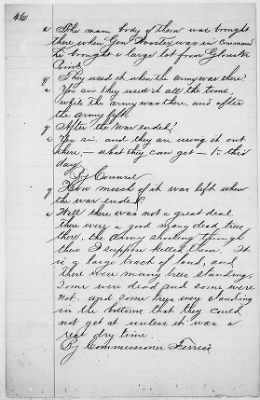 46
a The main body of them was brought
there when Gen was in command
he brought a large lot from Gloucester
Point.
q They used it when the army was there?
a Yes sir they used it all the time,
while the army was there, and after
the army left.
q After the war ended?
a Yes sir, and they are using it out
there, – what they can get – to this
day.
By Counsel
q How much of it was left when
the war ended?
a Well there was not a great deal.
There were a good many dead trees
there, the Army shooting through
them I suppose killed them. It
is a large tract of land, and
there were many trees standing,
some were dead and some were
not. and some logs were standing
in the bottoms that they could
not get at unless it was a
real dry time.
By Commissioner Ferriss